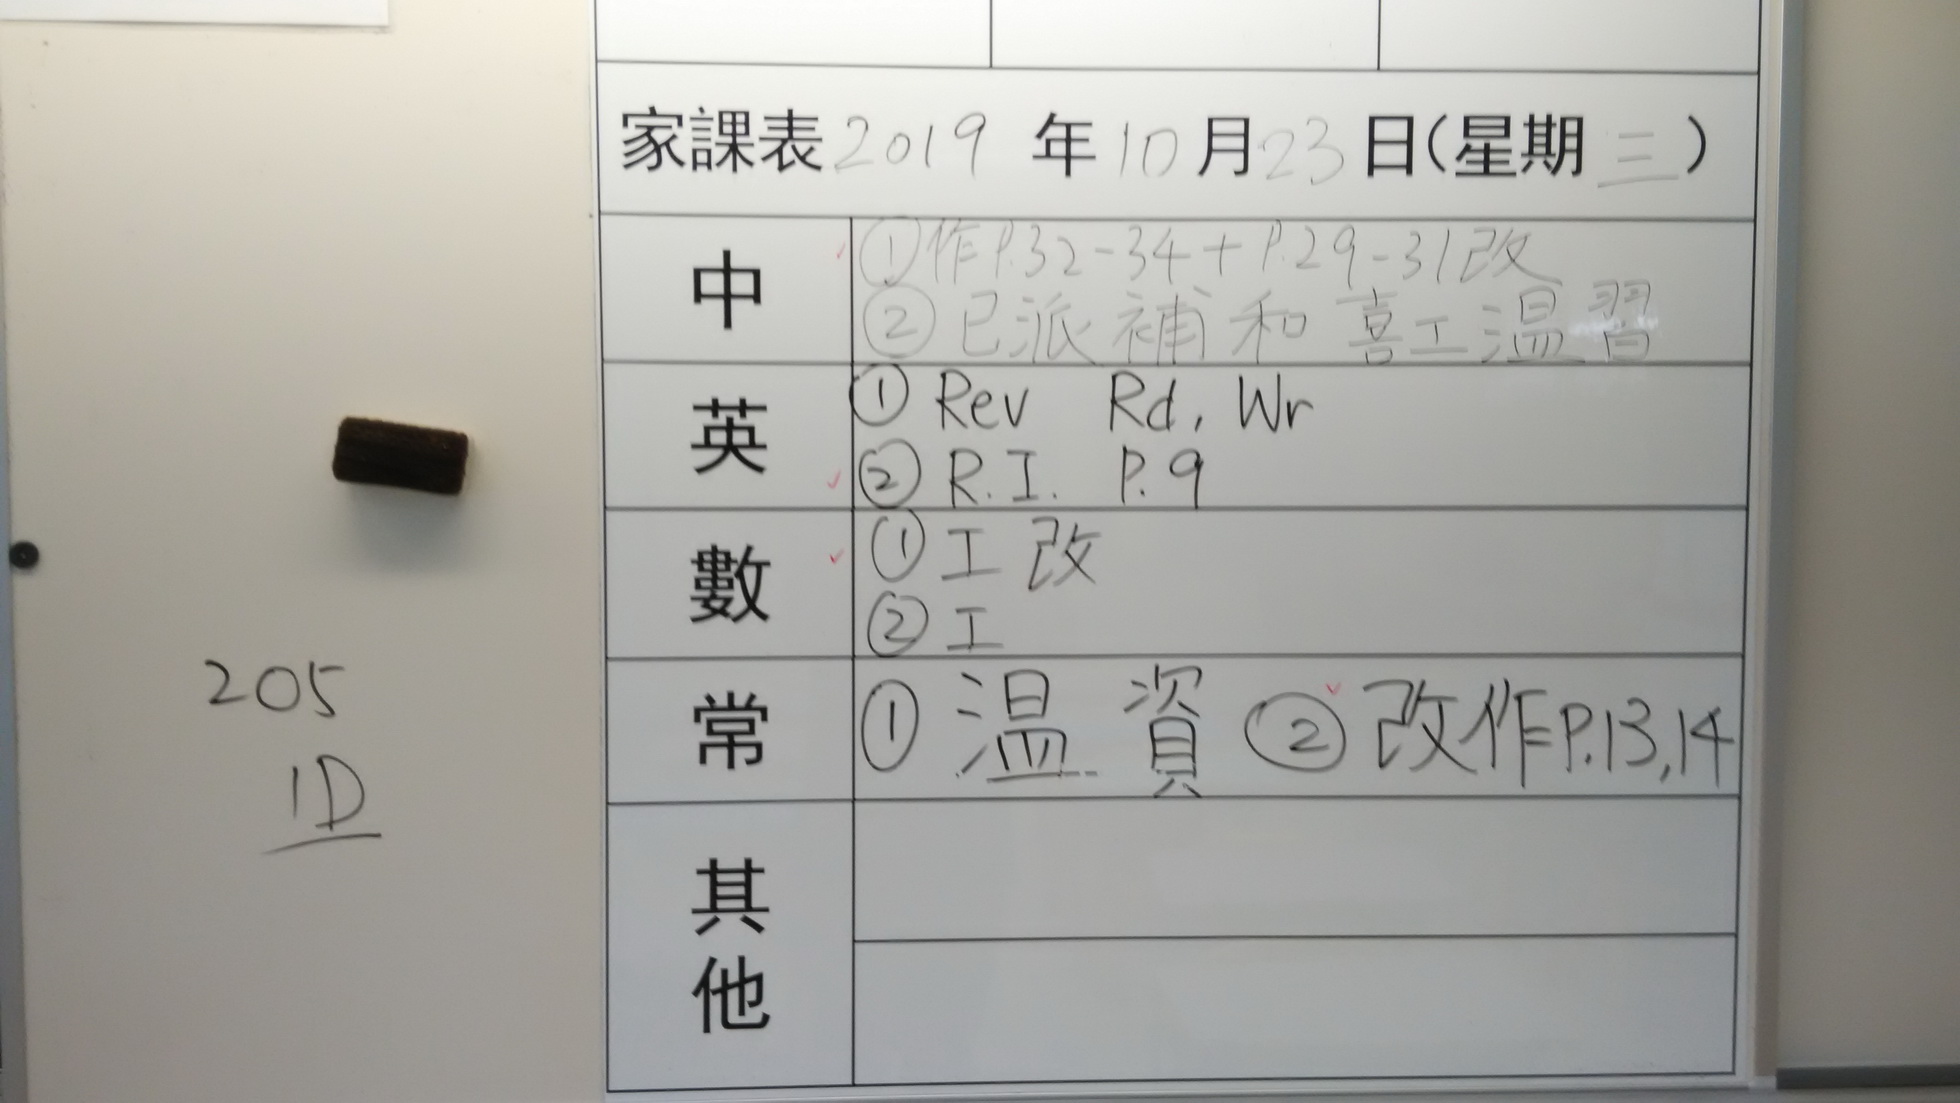 家課表 2019 年 10 月 23 日(星期 三)
中
①作P.32-34+P.29-31改
②已派補和喜工溫習
英
① Rev Rd, Wr
② R.I. P.9
數
①工改
②工
常
①溫資 ②改作P.13,14
其他
205
1D